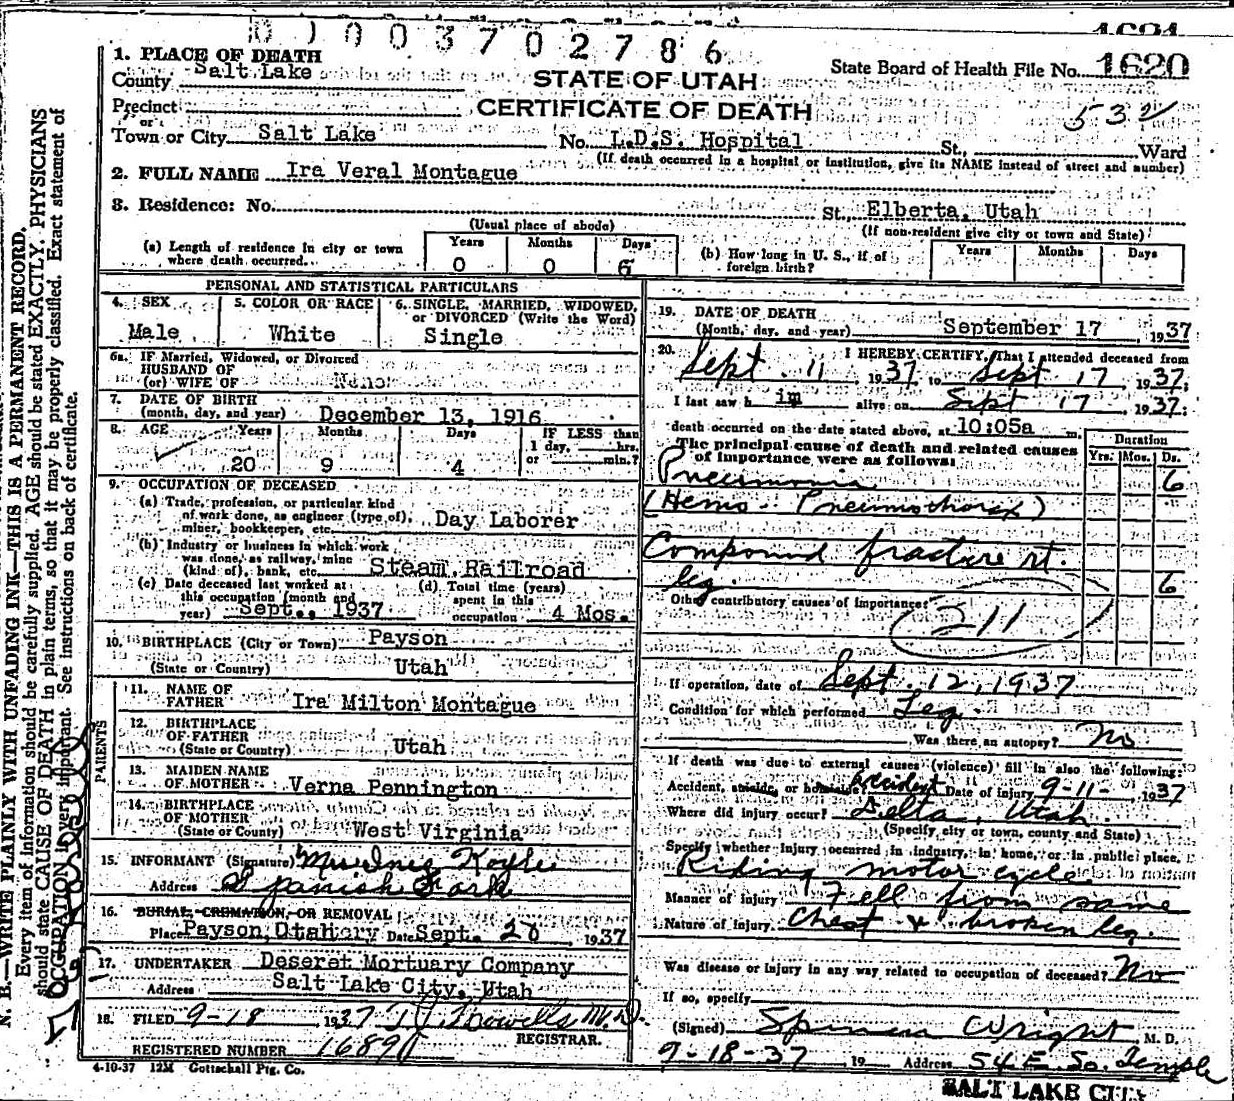 D 1 0 0 3 7 0 2 7 8 6
1. PLACE OF DEATH
County Salt Lake
STATE OF UTAH
State Board of Health File No. 1620
Precinct
CERTIFICATE OF DEATH
532
or
Town or City Salt Lake No. L.D.S. Hospital St., Ward
(If death occurred in a hospital or institution, give its NAME instead of street and number)
2. FULL NAME Ira Veral Montague
3. Residence: No. St., Elberta, Utah
(Usual place of abode) (If non-resident give city or town and State)
(a) Length of residence in city or town where death occurred. Years 0 Months 0 Days 6
(b) How long in U. S., if of foreign birth? Years Months Days
PERSONAL AND STATISTICAL PARTICULARS
4. SEX Male
5. COLOR OR RACE White
6. SINGLE, MARRIED, WIDOWED, or DIVORCED (Write the Word) Single
6a. IF Married, Widowed, or Divorced
HUSBAND OF
(or) WIFE OF None
7. DATE OF BIRTH
(month, day, and year) December 13, 1916
8. AGE Years 20 Months 9 Days 4
IF LESS than 1 day, hrs. or min.?
9. OCCUPATION OF DECEASED
(a) Trade, profession, or particular kind
of work done, as engineer (type of),
miner, bookkeeper, etc. Day Laborer
(b) Industry or business in which work
was done, as railway, mine
(kind of), bank, etc. Steam Railroad
(c) Date deceased last worked at
this occupation (month and
year) Sept., 1937
(d) Total time (years)
spent in this
occupation 4 Mos.
10. BIRTHPLACE (City or Town) Payson
(State or Country) Utah
PARENTS
11. NAME OF
FATHER Ira Milton Montague
12. BIRTHPLACE
OF FATHER
(State or Country) Utah
13. MAIDEN NAME
OF MOTHER Verna Pennington
14. BIRTHPLACE
OF MOTHER
(State or County) West Virginia
15. INFORMANT (Signature) Mrs Inez Koyle
Address Spanish Fork
16. BURIAL, CREMATION, OR REMOVAL
Place Payson, Utah Date Sept. 20, 1937
17. UNDERTAKER Deseret Mortuary Company
Address Salt Lake City, Utah
18. FILED 9-18 1937 M.D.
REGISTRAR.
REGISTERED NUMBER
4-10-37 12M Gottschall Ptg. Co.
19. DATE OF DEATH
(Month, day, and year) September 17, 1937
20. I HEREBY CERTIFY, That I attended deceased from
Sept. 11 1937 to Sept 17, 1937
I last saw him alive on Sept 17, 1937
death occurred on the date stated above, at 10:05a m.
The principal cause of death and related causes
of importance were as follows:
Duration
Yrs. Mos. Ds.
Pneumonia 6
(Hemo-Pneumothorax)
Compound fracture rt.
leg. 6
Other contributory causes of importance:
211
If operation, date of Sept. 12, 1937
Condition for which performed Leg.
Was there an autopsy? No
If death was due to external causes (violence) fill in also the following:
Accident, suicide, or homicide? Accident Date of injury 9-11- 1937
Where did injury occur? Delta, Utah.
(Specify city or town, county and State)
Specify whether injury occurred in industry, in home, or in public place,
Riding motor cycle
Manner of injury Fell from same
Nature of injury Chest & broken leg.
Was disease or injury in any way related to occupation of deceased? No
If so, specify
(Signed) Wright, M. D.
9-18-37, 19 Address 54 E. So. Temple
SALT LAKE CITY
N. B.—WRITE PLAINLY WITH UNFADING INK—THIS IS A PERMANENT RECORD.
Every item of information should be carefully supplied. AGE should be stated EXACTLY. PHYSICIANS
should state CAUSE OF DEATH in plain terms, so that it may be properly classified. Exact statement of
OCCUPATION is very important. See instructions on back of certificate.